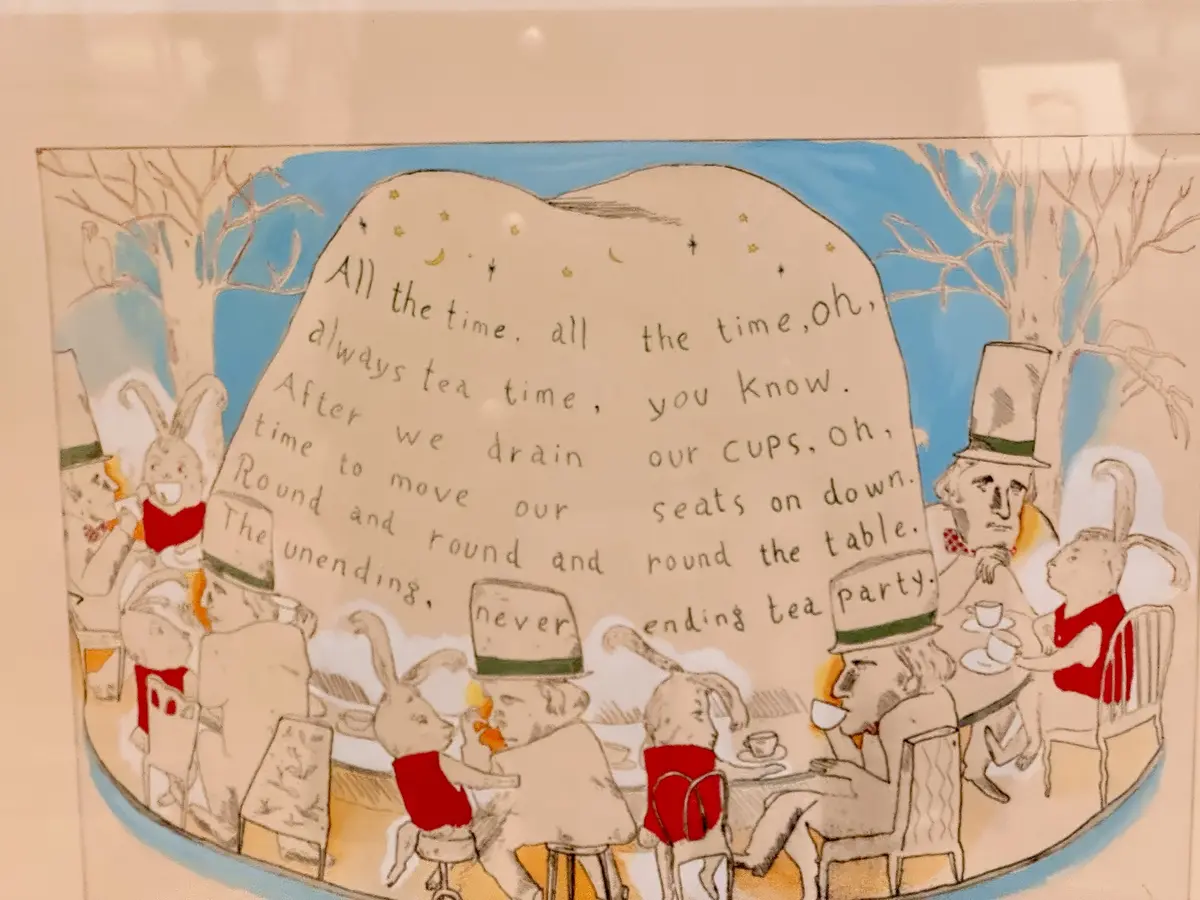 All the time, all the time, oh,
always tea time, you know.
After we drain our cups, oh,
time to move our seats on down.
Round and round and round the table.
The unending, never ending tea party.